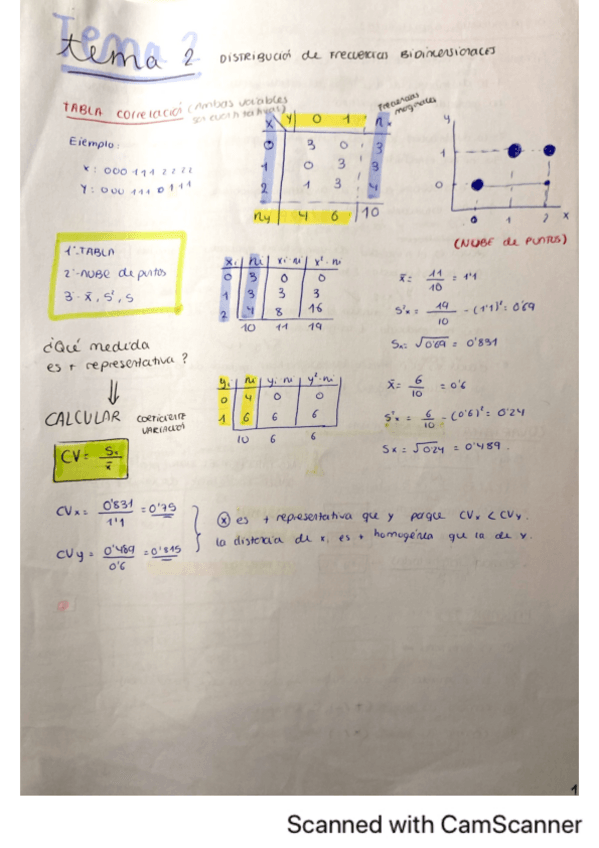 Tema 2
tema 2 DISTRIBUCIÓ de FRECUENCIAS BIDIMENSIONALES
TABLA CORRELACIÓ (Ambas variables
son cuantitativas)
Frecuencias
marginales
Ejemplo:
X: 000 111 2222
Y: 000 111 0111
X Y 0 1 n.
0 3 0 3
1 0 3 3
2 1 3 4
ny 4 6 10
y
1
0
0 1 2 x
(NUBE de PUNTOS)
1º-TABLA
2º-NUBE de puntos
3º- x̄, S², S
xi ni xi·ni x²·ni
0 3 0 0
1 3 3 3
2 4 8 16
10 11 19
x̄ = 11/10 = 1'1
S²x = 19/10 - (1'1)² = 0'69
Sx = √0'69 = 0'831
¿Qué medida
es + representativa?
⇓
CALCULAR COEFICIENTE
VARIACIÓN
CV = Sx/x̄
yi ni yi·ni y²·ni
0 4 0 0
1 6 6 6
10 6 6
x̄ = 6/10 = 0'6
S²x = 6/10 - (0'6)² = 0'24
Sx = √0'24 = 0'489.
CVx = 0'831/1'1 = 0'75
CVy = 0'489/0'6 = 0'815
(x) es + representativa que y porque CVx < CVy.
la distancia de x, es + homogénea que la de y.
1
Scanned with CamScanner